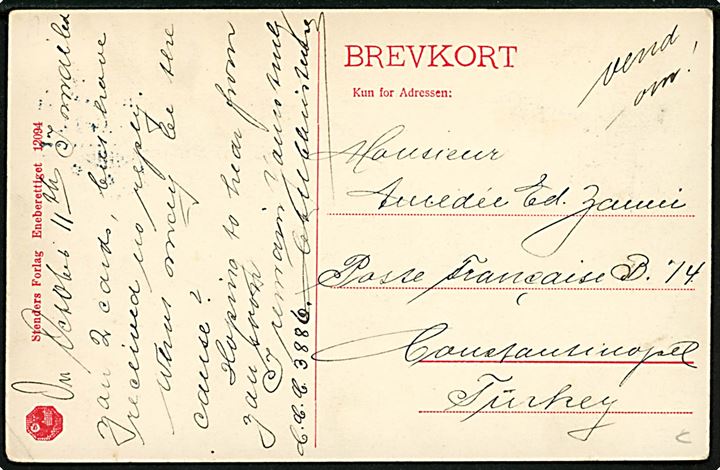 Stenders Forlag Eneberettiget 12094
On October 11th I mailed
you 2 cards, but have
received no reply.
What may be the
cause?
Hoping to hear from
you soon
I remain yours truly
C.C.C. 3886.
BREVKORT
Kun for Adressen:
vend
om!
Monsieur
Amedée Ed. Zanni
Poste Française B. 74
Constantinopel
Türkey